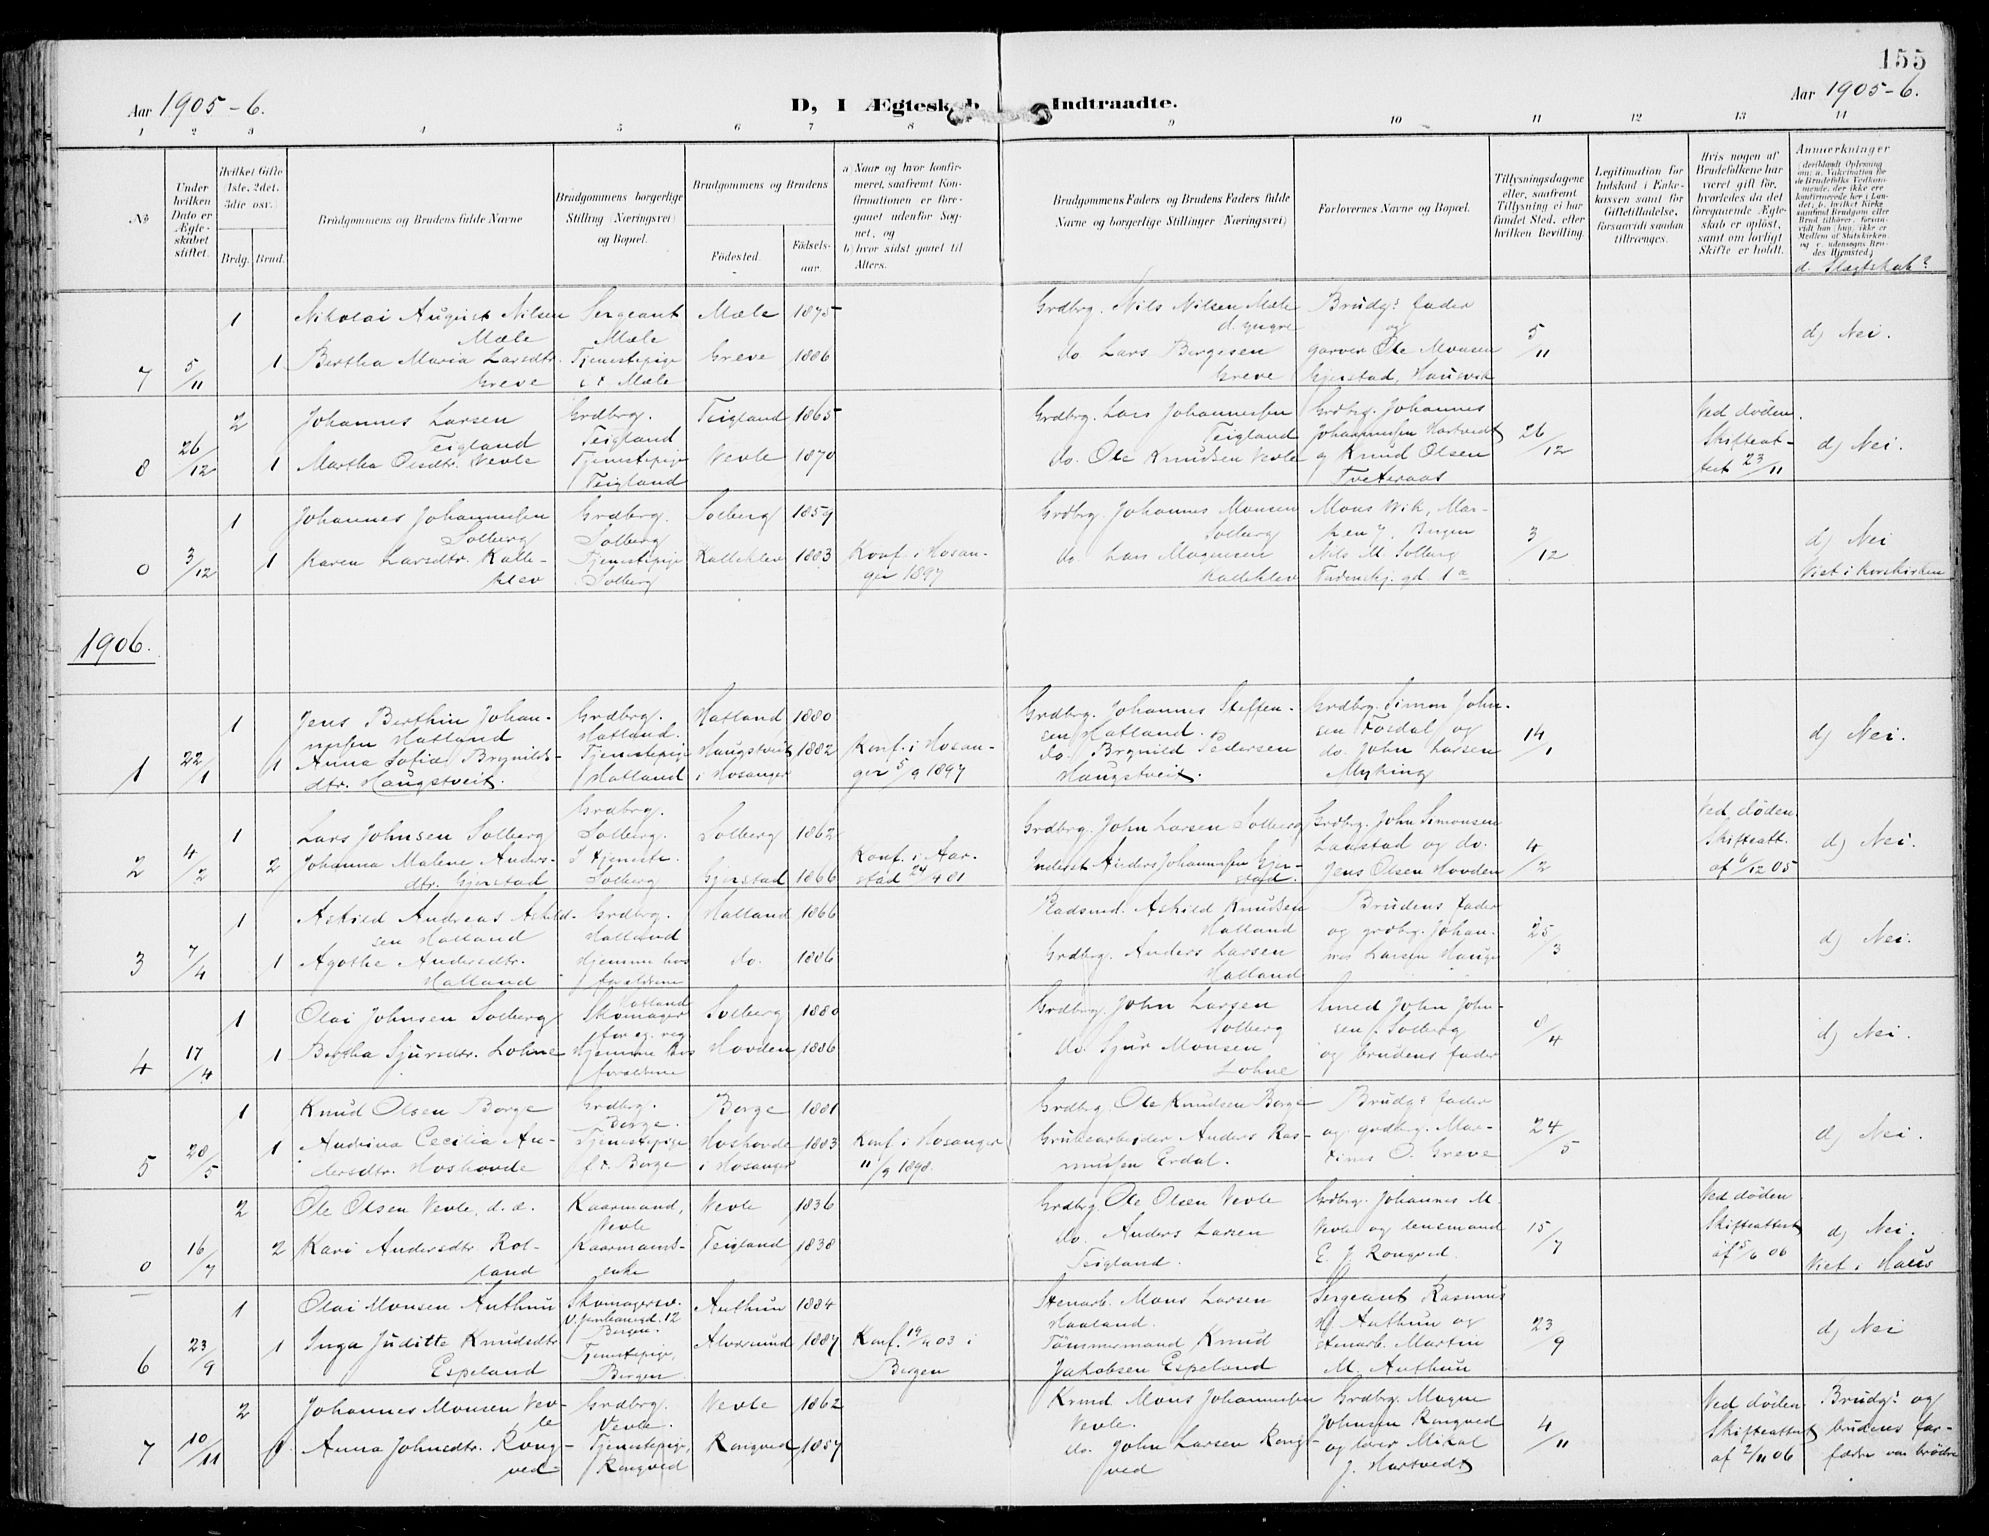 155
Aar 1905-6.
D, I Ægtesk b Indtraadte.
Aar 1905-6.
1 2 3 4 5 6 7 8 9 10 11 12 13 14
No
Under hvilken Dato er Ægteskabet stiftet.
Hvilket Gifte 1ste, 2det, 3die osv.)
Brdg. Brud.
Brudgommens og Brudens fulde Navne
Brudgommens borgerlige Stilling (Næringsvei) og Bopæl.
Brudgommens og Brudens
Fødested.
Fødselsaar.
a) Naar og hvor konfirmeret, saafremt Konfirmationen er foregaaet udenfor Sognet, og
b) hvor sidst gaaet til Alters.
Brudgommens Faders og Brudens Faders fulde Navne og borgerlige Stillinger (Næringsvei)
Forlovernes Navne og Bopæl.
Tillysningsdagene eller, saafremt Tillysning ei har fundet Sted, efter hvilken Bevilling.
Legitimation for Indskud i Enkekassen samt for Giftetilladelse, forsaavidt saadan tiltrænges.
Hvis nogen af Brudefolkene har været gift før, hvorledes da det foregaaende Ægteskab er opløst, samt om lovligt Skifte er holdt.
Anmerkninger
d. Slægtskab?
7 5/11 1 Nikolai August Nilsen Mæle Sergeant Mæle Mæle 1875 Grdbrg. Nils Nilsen Mæle d. yngre Brudgs fader og 5/11 d) Nei.
1 Bertha Maria Larsdtr. Greve Tjenestepige Mæle Greve 1886 do Lars Bergesen Greve garver Ole Monsen Gjerstad, Hausvik
8 26/12 2 Johannes Larsen Teigland Grdbrg. Teigland Teigland 1865 Grdbrg. Lars Johannessen Teigland Grdbrg. Johannes Johannessen Hartvedt 26/12 Ved døden. Skifteattest 23/11 d) Nei.
1 Martha Olsdtr. Vevle Tjenestepige Teigland Vevle 1870 do. Ole Knudsen Vevle og Knud Olsen Tveteraas
0 3/12 1 Johannes Johannessen Solberg Grdbrg. Solberg Solberg 1859 Grdbrg. Johannes Monsen Solberg Mons Wik, Nils M Solberg 3/12 d) Nei
1 Karen Larsdtr. Kalleklev Tjenestepige Solberg Kalleklev 1883 Konf. i Hosanger 1897 do Lars Magnesen Kalleklev Viet i Korskirken
1906.
1 22/1 1 Jens Berthin Johannessen Hatland Grdbrg. Hatland. Hatland 1880 Grdbrg. Johannes Steffensen Hatland. Grdbrg. Simon Johnsen Fosdal og 14/1 d) Nei.
1 Anna Sofie Brynildsdtr. Haugstveit. Tjenestepige Hatland Haugstveit i Hosanger 1882 Konf. i Hosanger 5/9 1897 do. Brynild Pedersen Haugstveit. do. John Larsen Myking
2 4/2 1 Lars Johnsen Solberg Grdbrg. Solberg. Solberg 1862 Grdbrg. John Larsen Solberg Grdbrg. John Simonsen Laastad og do. 4/2 Ved døden. Skifteatt. af 6/12 05 d) Nei.
2 Johanna Malene Andersdtr. Gjerstad I tjeneste. Solberg Gjerstad 1866 Konf. i Aarstad 24/4 81 Inderst Anders Johannessen Gjerstad. Jens Olsen Hovden
3 7/4 1 Askild Andreas Askildsen Hatland Grdbrg. Hatland Hatland 1866 Askild Knudsen Hatland Brudens fader og grdbrg. Johannes Larsen Hauge 25/3 d) Nei.
1 Agathe Andersdtr. Hatland Hjemme hos forældrene Hatland do. 1886 Grdbrg. Anders Larsen Hatland
4 17/4 1 Olai Johnsen Solberg Skomager for eg. reg Solberg 1880 Grdbrg. John Larsen Solberg Smed John Johnsen Solberg 8/4 d) Nei.
1 Bertha Sjursdtr. Lohne Hjemme hos forældrene Hovden 1886 do. Sjur Monsen Lohne og brudens fader
5 20/5 1 Knud Olsen Borge Grdbrg. Borge. Borge 1881 Grdbrg. Ole Knudsen Borge Brudgs fader 24/5 d) Nei.
1 Andrina Cecilia Andersdtr. Hoshovde Tjenestepige Borge Hoshovde i Hosanger 1883 Konf. i Hosanger 11/9 1898. Grubearbeider Anders Rasmussen Erdal. og grdbrg. Martines O. Greve
0 16/7 2 Ole Olsen Vevle, d. æ. Kaarmand, Vevle Vevle 1836 Grdbrg. Ole Olsen Vevle Grdbrg. Johannes M. Vevle og lensmand E. J. Rongved. 15/7 Ved døden Skifteattest af 5/6 06 d) Nei.
2 Kari Andersdtr. Rolland Kaarmandsenke Teigland 1838 do. Anders Larsen Teigland. Viet i Haus
6 23/9 1 Olai Monsen Authun Skomagersv. 12 Bergen. Authun 1884 Stenarb. Mons Larsen Haaland. Sergeant Rasmus M. Authun og 23/9 d) Nei
1 Inga Juditte Knudsdtr. Espeland Tjenestepige, Bergen Alversund 1887 Konf. 19/4 03 i Bergen Tømmermand Knud Jakobsen Espeland stenarb. Martin M. Authun
7 10/11 2 Johannes Monsen Vevle Grdbrg. Vevle. Vevle 1862 Mons Johannessen Vevle. Grdbrg. Magne Johnsen Rongved 4/11 Ved døden. Skifteattest af 2/11 06 Brudgs og brudens forfædre var brødre
1 Anna Johnsdtr. Rongved Tjenestepige, Rongved Rongved 1857 do. John Larsen Rongved og lærer Mikal J. Hartvedt